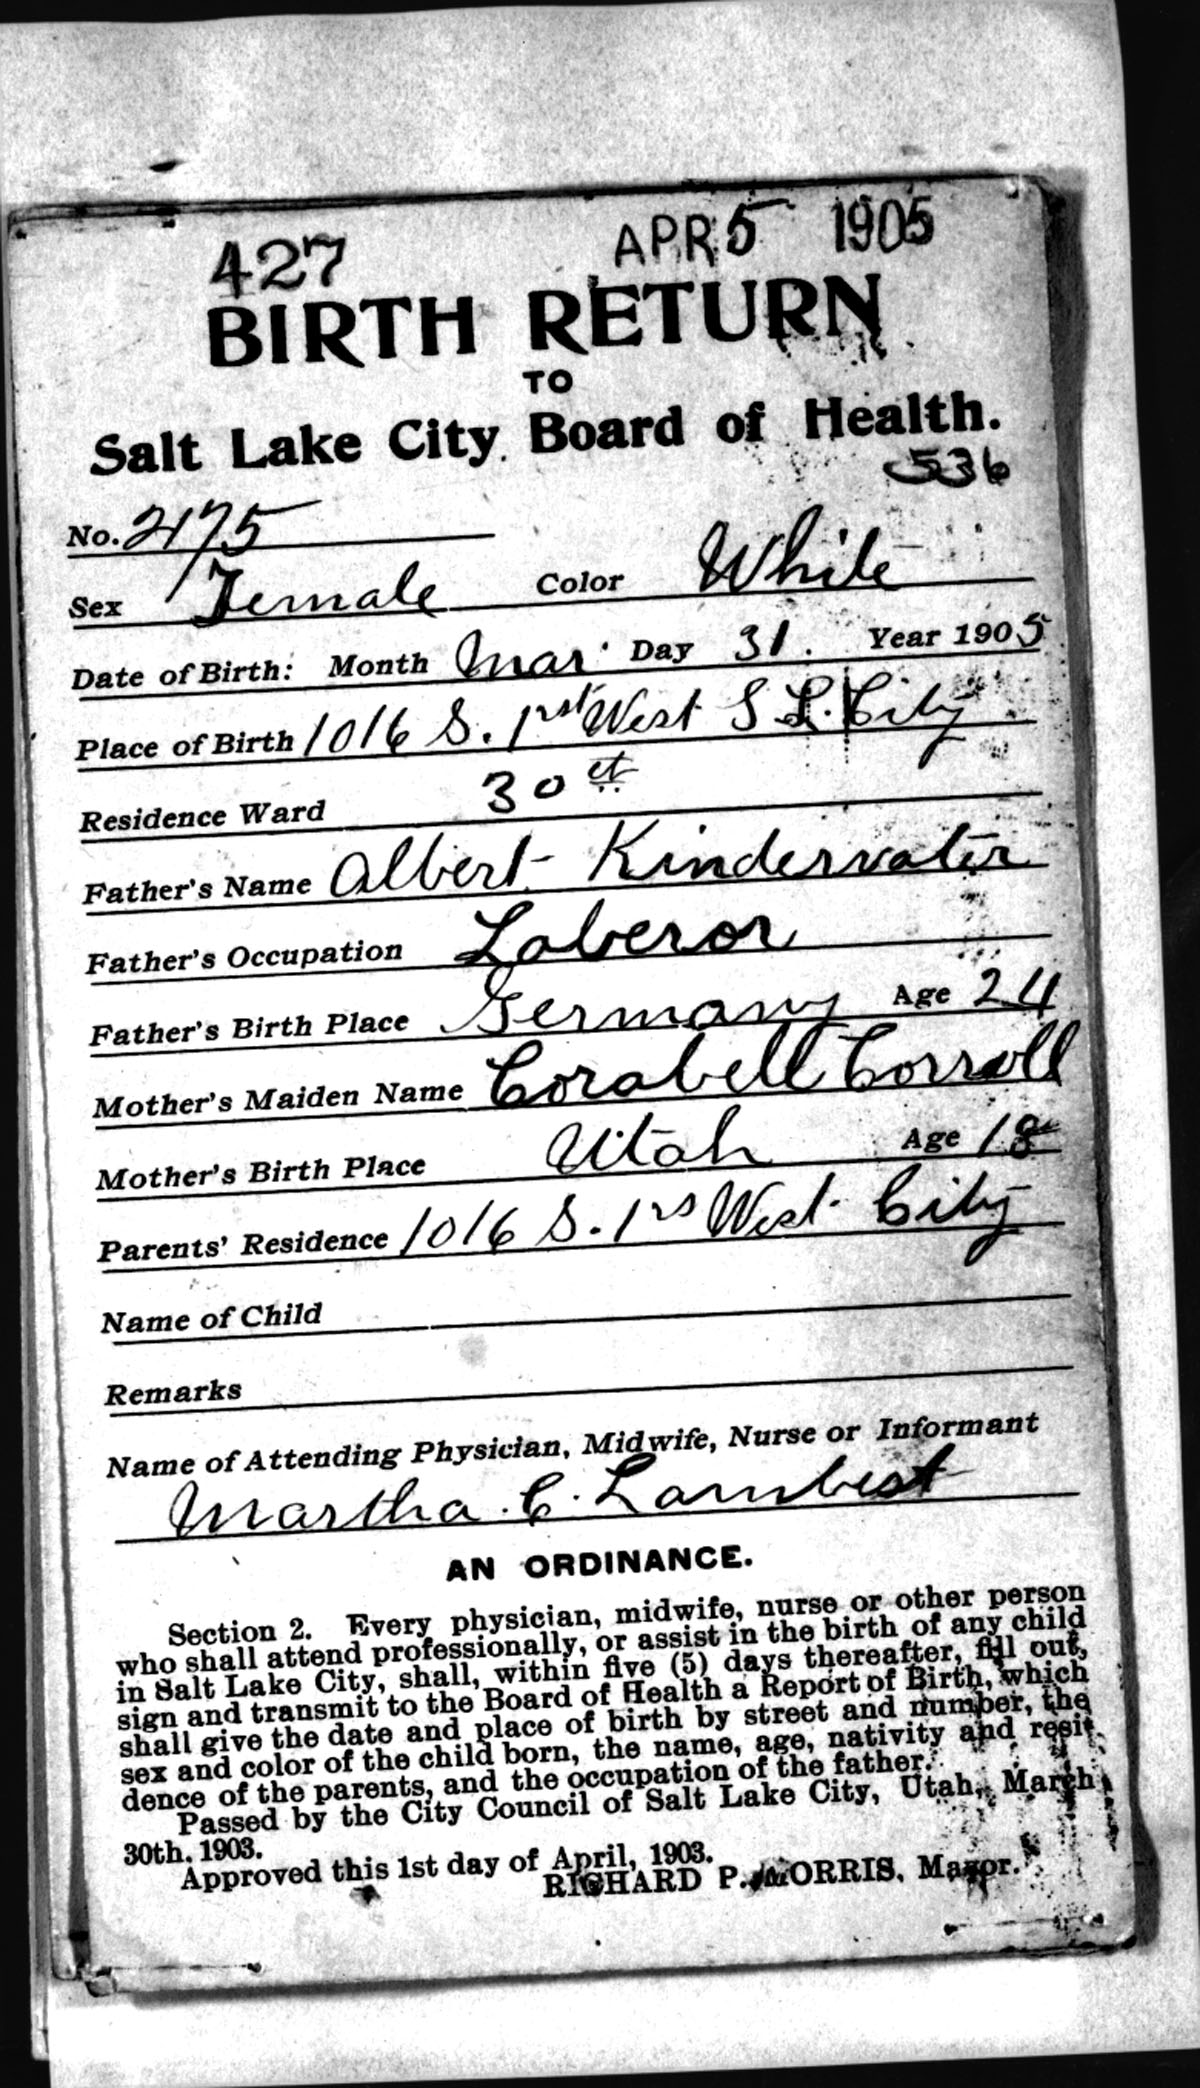 427 APR 5 1905
BIRTH RETURN
TO
Salt Lake City Board of Health.
536
No. 2175
Sex Female Color White
Date of Birth: Month Mar. Day 31. Year 1905
Place of Birth 1016 S. 1rst West S L. City
Residence Ward 30 et
Father's Name Albert Kindervater
Father's Occupation Laberor
Father's Birth Place Germany Age 24
Mother's Maiden Name Corabell Corroll
Mother's Birth Place Utah Age 18
Parents' Residence 1016 S. 1rs West City
Name of Child
Remarks
Name of Attending Physician, Midwife, Nurse or Informant
Martha C. Lambert
AN ORDINANCE.
Section 2. Every physician, midwife, nurse or other person
who shall attend professionally, or assist in the birth of any child
in Salt Lake City, shall, within five (5) days thereafter, fill out,
sign and transmit to the Board of Health a Report of Birth, which
shall give the date and place of birth by street and number, the
sex and color of the child born, the name, age, nativity and resi-
dence of the parents, and the occupation of the father.
Passed by the City Council of Salt Lake City, Utah, March
30th. 1903.
Approved this 1st day of April, 1903.
RICHARD P. MORRIS, Mayor.